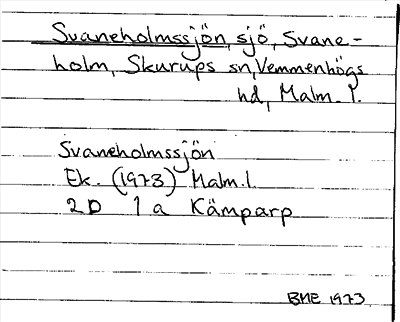 Svaneholmssjön, sjö, Svane-
holm, Skurups sn, Vemmenhögs
hd, Malm. l.
Svaneholmssjön
Ek. (1973) Malm. l.
2D 1a Kämparp
BME 1973